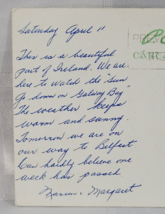 Saturday April 11
This is a beautiful
part of Ireland. We are
here to watch the "Sun
Go Down on Galway Bay"
The weather keeps
warm and sunny
Tomorrow we are on
our way to Belfast
Can hardly believe one
week has passed
Margaret